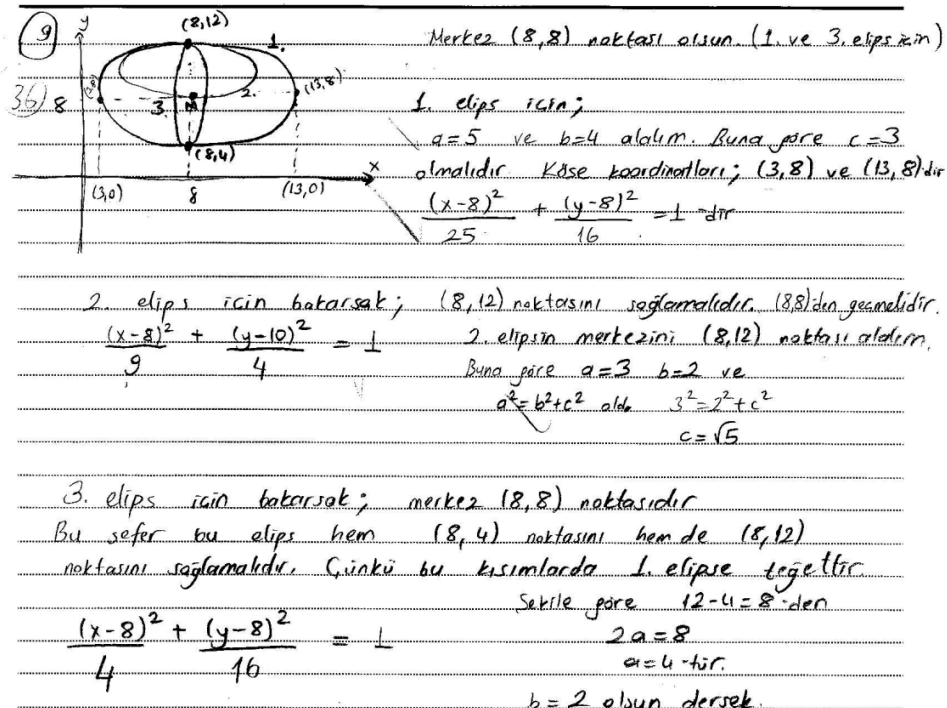 9
y
(8,12)
1.
Merkez (8,8) noktası olsun. (1. ve 3. elips için)
36)
8
(3,8)
3.
M
2.
(13,8)
(8,4)
x
(3,0)
8
(13,0)
1. elips için;
a=5 ve b=4 alalım. Buna göre c=3
olmalıdır Köşe koordinatları; (3,8) ve (13,8)'dir
(x-8)²/25 + (y-8)²/16 = 1 'dir
2. elips için bakarsak; (8,12) noktasını sağlamalıdır. (8,8)'den geçmelidir.
(x-8)²/9 + (y-10)²/4 = 1
2. elipsin merkezini (8,12) noktası alalım.
Buna göre a=3 b=2 ve
a²=b²+c² old. 3²=2²+c²
c=√5
3. elips için bakarsak; merkez (8,8) noktasıdır
Bu sefer bu elips hem (8,4) noktasını hem de (8,12)
noktasını sağlamalıdır. Çünkü bu kısımlarda 1. elipse teğettir.
Şekile göre 12-4=8'den
(x-8)²/4 + (y-8)²/16 = 1
2a=8
a=4'tür.
b=2 olsun dersek.